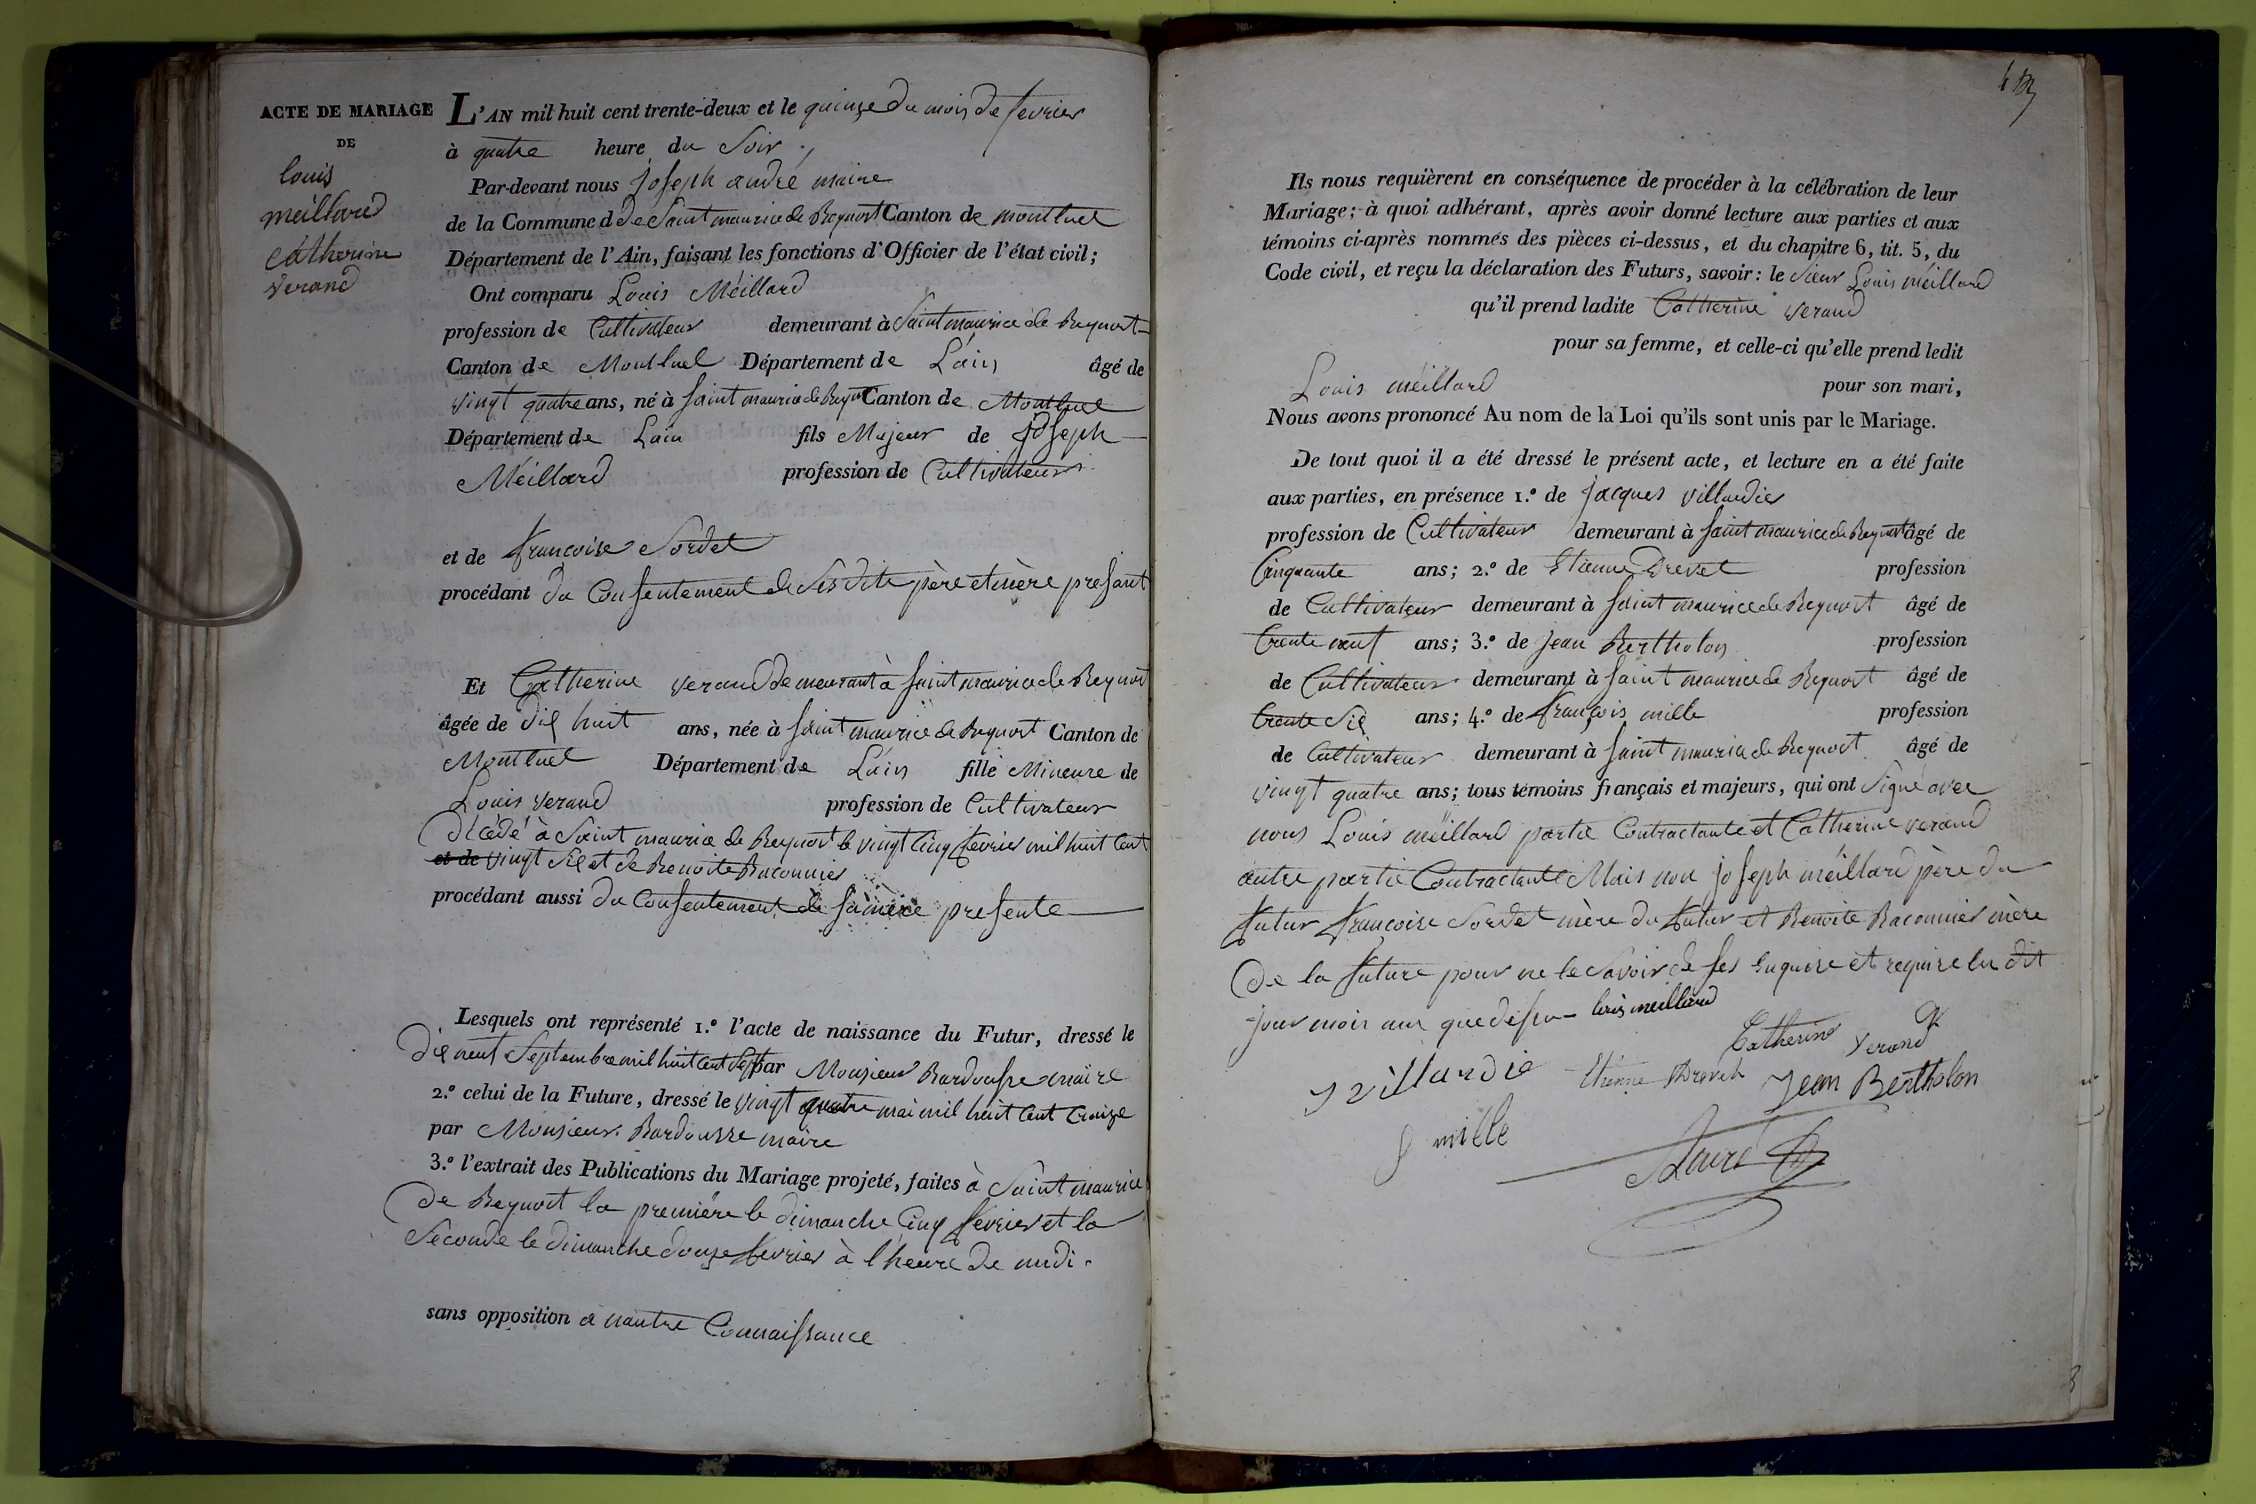 ACTE DE MARIAGE
DE
louis
meillard
Catherine
verand
L'AN mil huit cent trente-deux et le quinze du mois de fevrier
à quatre heure du Soir .,
Par-devant nous joseph andré maire
de la Commune d de Saint maurice de Beynost Canton de montluel
Département de l'Ain, faisant les fonctions d'Officier de l'état civil ;
Ont comparu Louis Méillard
profession de Cultivateur demeurant à Saint maurice de Beynost
Canton de Montluel Département de Lain âgé de
vingt quatre ans, né à saint maurice de Beynost Canton de Montluel
Département de Lain fils Majeur de Joseph
Méillard profession de Cultivateur
et de françoise Sordet
procédant du Consentement de Ses dits père et mère present
Et Catherine verand demeurant à saint maurice de Beynost
âgée de dix huit ans, née à saint maurice de Beynost Canton de
Montluel Département de Lain fille Mineure de
Louis verand profession de Cultivateur
décédé à Saint maurice de Beynost le vingt Cinq fevrier mil huit Cent
et de vingt Six et de Benoite Baconnier
procédant aussi du Consentement de sa mère presente
Lesquels ont représenté 1.º l'acte de naissance du Futur, dressé le
dix neuf Septembre mil huit Cent Sept par Monsieur Bardousse maire
2.º celui de la Future, dressé le vingt quatre mai mil huit Cent traize
par Monsieur Bardousse maire
3.º l'extrait des Publications du Mariage projeté, faites à Saint maurice
de Beynost la première le dimanche Cinq fevrier et la
Seconde le dimanche douze fevrier à l'heure de midi .
sans opposition a nautre Connaissance
Ils nous requièrent en conséquence de procéder à la célébration de leur
Mariage ; à quoi adhérant, après avoir donné lecture aux parties et aux
témoins ci-après nommés des pièces ci-dessus, et du chapitre 6, tit. 5, du
Code civil, et reçu la déclaration des Futurs, savoir : le Sieur Louis méillard
qu'il prend ladite Catherine verand
pour sa femme, et celle-ci qu'elle prend ledit
Louis méillard pour son mari,
Nous avons prononcé Au nom de la Loi qu'ils sont unis par le Mariage.
De tout quoi il a été dressé le présent acte, et lecture en a été faite
aux parties, en présence 1.º de jacques villardier
profession de Cultivateur demeurant à saint maurice de Beynost âgé de
Cinquante ans ; 2.º de Etienne Drevet profession
de Cultivateur demeurant à saint maurice de Beynost âgé de
trente neuf ans ; 3.º de jean Bertholon profession
de Cultivateur demeurant à saint maurice de Beynost âgé de
trente Six ans ; 4.º de françois mille profession
de Cultivateur demeurant à saint maurice de Beynost âgé de
vingt quatre ans ; tous témoins français et majeurs, qui ont Signé avec
nous Louis méillard partie Contractante et Catherine verand
autre partie Contractante Mais non joseph méillard père du
futur françoise Sordet mère du futur et Benoite Baconnier mère
de la future pour ne le Savoir de ses enquise et requise les dit
jour mois an que desu louis meillard
Catherine verand
J villardie Etienne Drevet Jean Bertholon
f mille
André